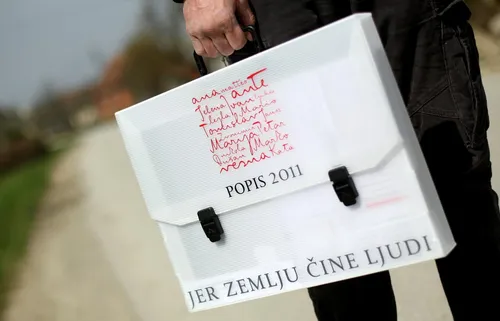 ana
Ante
Jelena Ivan
Tomislav
Marija Petar
Dušan Marko
vesna Kata
POPIS 2011
JER ZEMLJU ČINE LJUDI